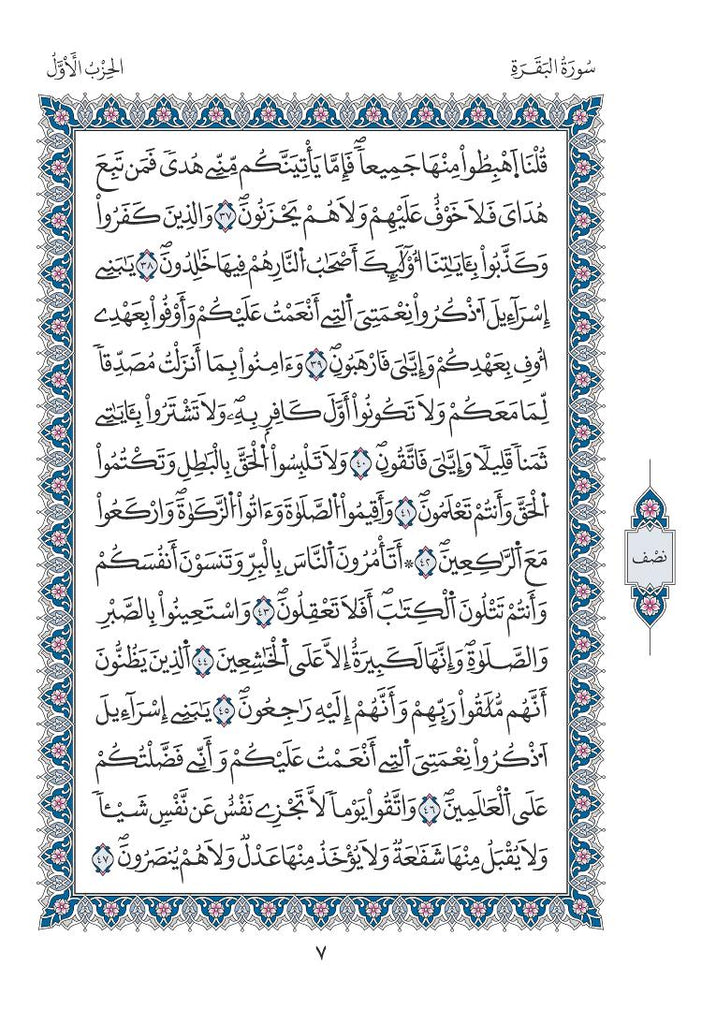 سُورَةُ البَقَرَةِ
الحِزْبُ الْأَوَّلُ
قُلْنَا اَهْبِطُواْ مِنْهَا جَمِيعاٗ فَإِمَّا يَأْتِيَنَّكُم مِّنِّے هُديٗ فَمَن تَبِعَ
هُدَايَ فَلَا خَوْفٌ عَلَيْهِمْ وَلَا هُمْ يَحْزَنُونَۖ ٣٧ وَالذِينَ كَفَرُواْ
وَكَذَّبُواْ بِـَٔايَٰتِنَا أُوْلَٰٓئِكَ أَصْحَٰبُ اُ۬لنّ۪ارِ هُمْ فِيهَا خَٰلِدُونَۖ ٣٨ يَٰبَنِےٓ
إِسْرَآءِيلَ اَ۟ذْكُرُواْ نِعْمَتِيَ اَ۬لتِےٓ أَنْعَمْتُ عَلَيْكُمْ وَأَوْفُواْ بِعَهْدِےٓ
أُوفِ بِعَهْدِكُمْ وَإِيَّٰيَ فَارْهَبُونِۖ ٣٩ وَءَامِنُواْ بِمَآ أَنزَلْتُ مُصَدِّقاٗ
لِّمَا مَعَكُمْ وَلَا تَكُونُوٓاْ أَوَّلَ كَافِرِۢ بِهِۦۖ وَلَا تَشْتَرُواْ بِـَٔايَٰتِے
ثَمَناٗ قَلِيلاٗ وَإِيَّٰيَ فَاتَّقُونِۖ ٤٠ وَلَا تَلْبِسُواْ اُ۬لْحَقَّ بِالْبَٰطِلِ وَتَكْتُمُواْ
اُ۬لْحَقَّ وَأَنتُمْ تَعْلَمُونَۖ ٤١ وَأَقِيمُواْ اُ۬لصَّلَوٰةَ وَءَاتُواْ اُ۬لزَّكَوٰةَۖ وَارْكَعُواْ
مَعَ اَ۬لرَّٰكِعِينَۖ ٤٢ ۞ أَتَامُرُونَ اَ۬لنَّاسَ بِالْبِرِّ وَتَنسَوْنَ أَنفُسَكُمْ
وَأَنتُمْ تَتْلُونَ اَ۬لْكِتَٰبَۖ أَفَلَا تَعْقِلُونَۖ ٤٣ وَاسْتَعِينُواْ بِالصَّبْرِ
وَالصَّلَوٰةِۖ وَإِنَّهَا لَكَبِيرَةٌ إِلَّا عَلَي اَ۬لْخَٰشِعِينَ ٤٤ اَ۬لذِينَ يَظُنُّونَ
أَنَّهُم مُّلَٰقُواْ رَبِّهِمْ وَأَنَّهُمْ إِلَيْهِ رَٰجِعُونَۖ ٤٥ يَٰبَنِےٓ إِسْرَآءِيلَ
اَ۟ذْكُرُواْ نِعْمَتِيَ اَ۬لتِےٓ أَنْعَمْتُ عَلَيْكُمْ وَأَنِّے فَضَّلْتُكُمْ
عَلَي اَ۬لْعَٰلَمِينَۖ ٤٦ وَاتَّقُواْ يَوْماٗ لَّا تَجْزِے نَفْسٌ عَن نَّفْسٖ شَيْـٔاٗ
وَلَا يُقْبَلُ مِنْهَا شَفَٰعَةٞ وَلَا يُؤْخَذُ مِنْهَا عَدْلٞ وَلَا هُمْ يُنصَرُونَۖ ٤٧
نصْف
٧